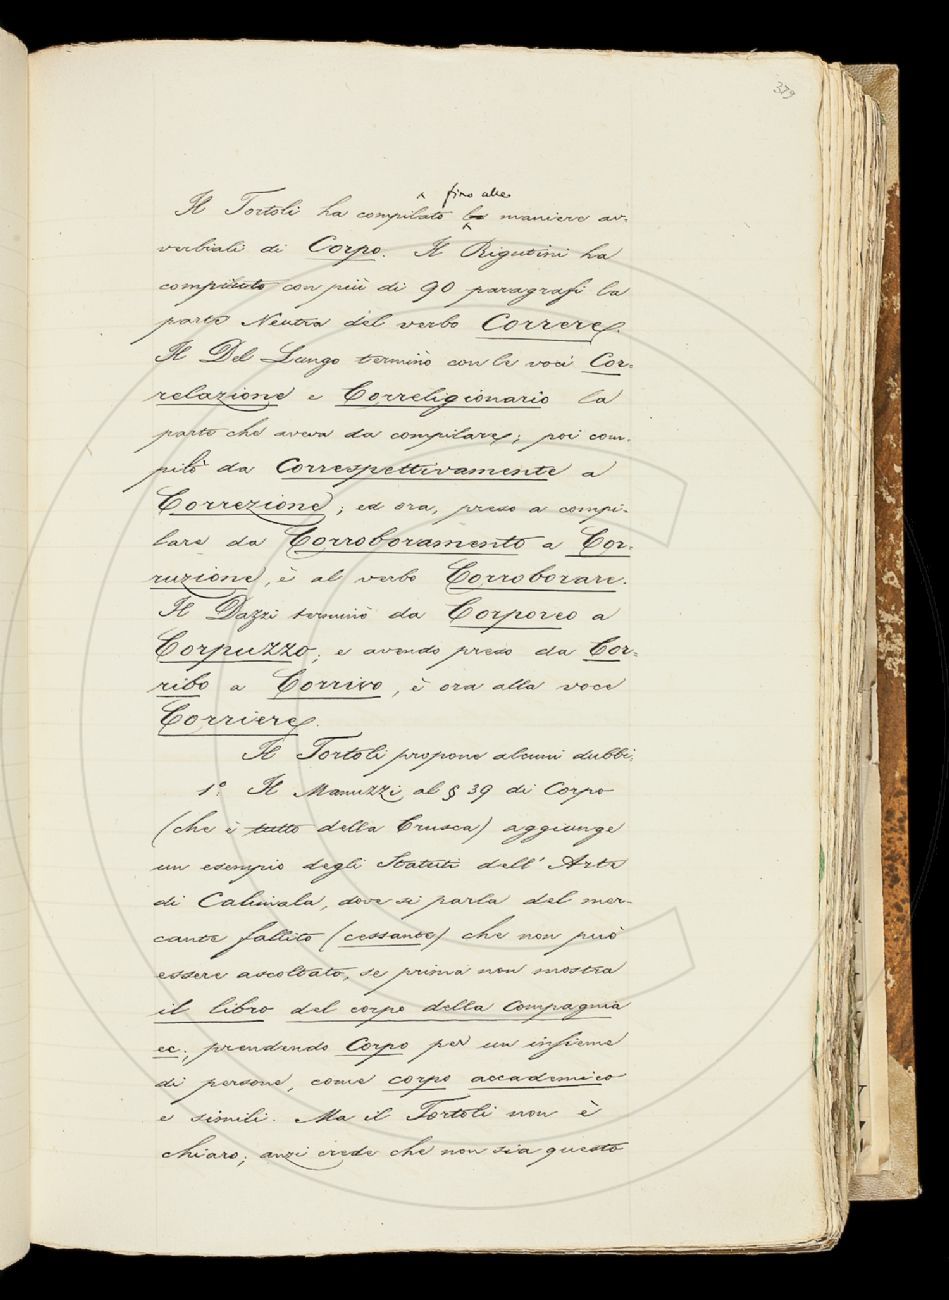 379
fino alle
Il Tortoli ha compilato le maniere av-
verbiali di Corpo. Il Rigutini ha
compiuto con più di 90 paragrafi la
parte Neutra del verbo Correre.
Il Del Lungo terminò con le voci Cor-
relazione e Correligionario la
parte che aveva da compilare; poi com-
pilò da Correspettivamente a
Correzione; ed ora, preso a compi-
lare da Corroboramento a Cor-
ruzione, è al verbo Corroborare.
Il Dazzi terminò da Corporeo a
Corpuzzo; e avendo preso da Cor-
ribo a Corrivo, è ora alla voce
Corriere.
Il Tortoli propone alcuni dubbi.
1º. Il Manuzzi al § 39 di Corpo
(che è tutto della Crusca) aggiunge
un esempio degli Statuti dell' Arte
di Calimala, dove si parla del mer-
cante fallito (cessante) che non può
essere ascoltato, se prima non mostra
il libro del corpo della Compagnia
ec.; prendendo Corpo per un insieme
di persone, come corpo accademico
e simili. Ma il Tortoli non è
chiaro; anzi crede che non sia questo